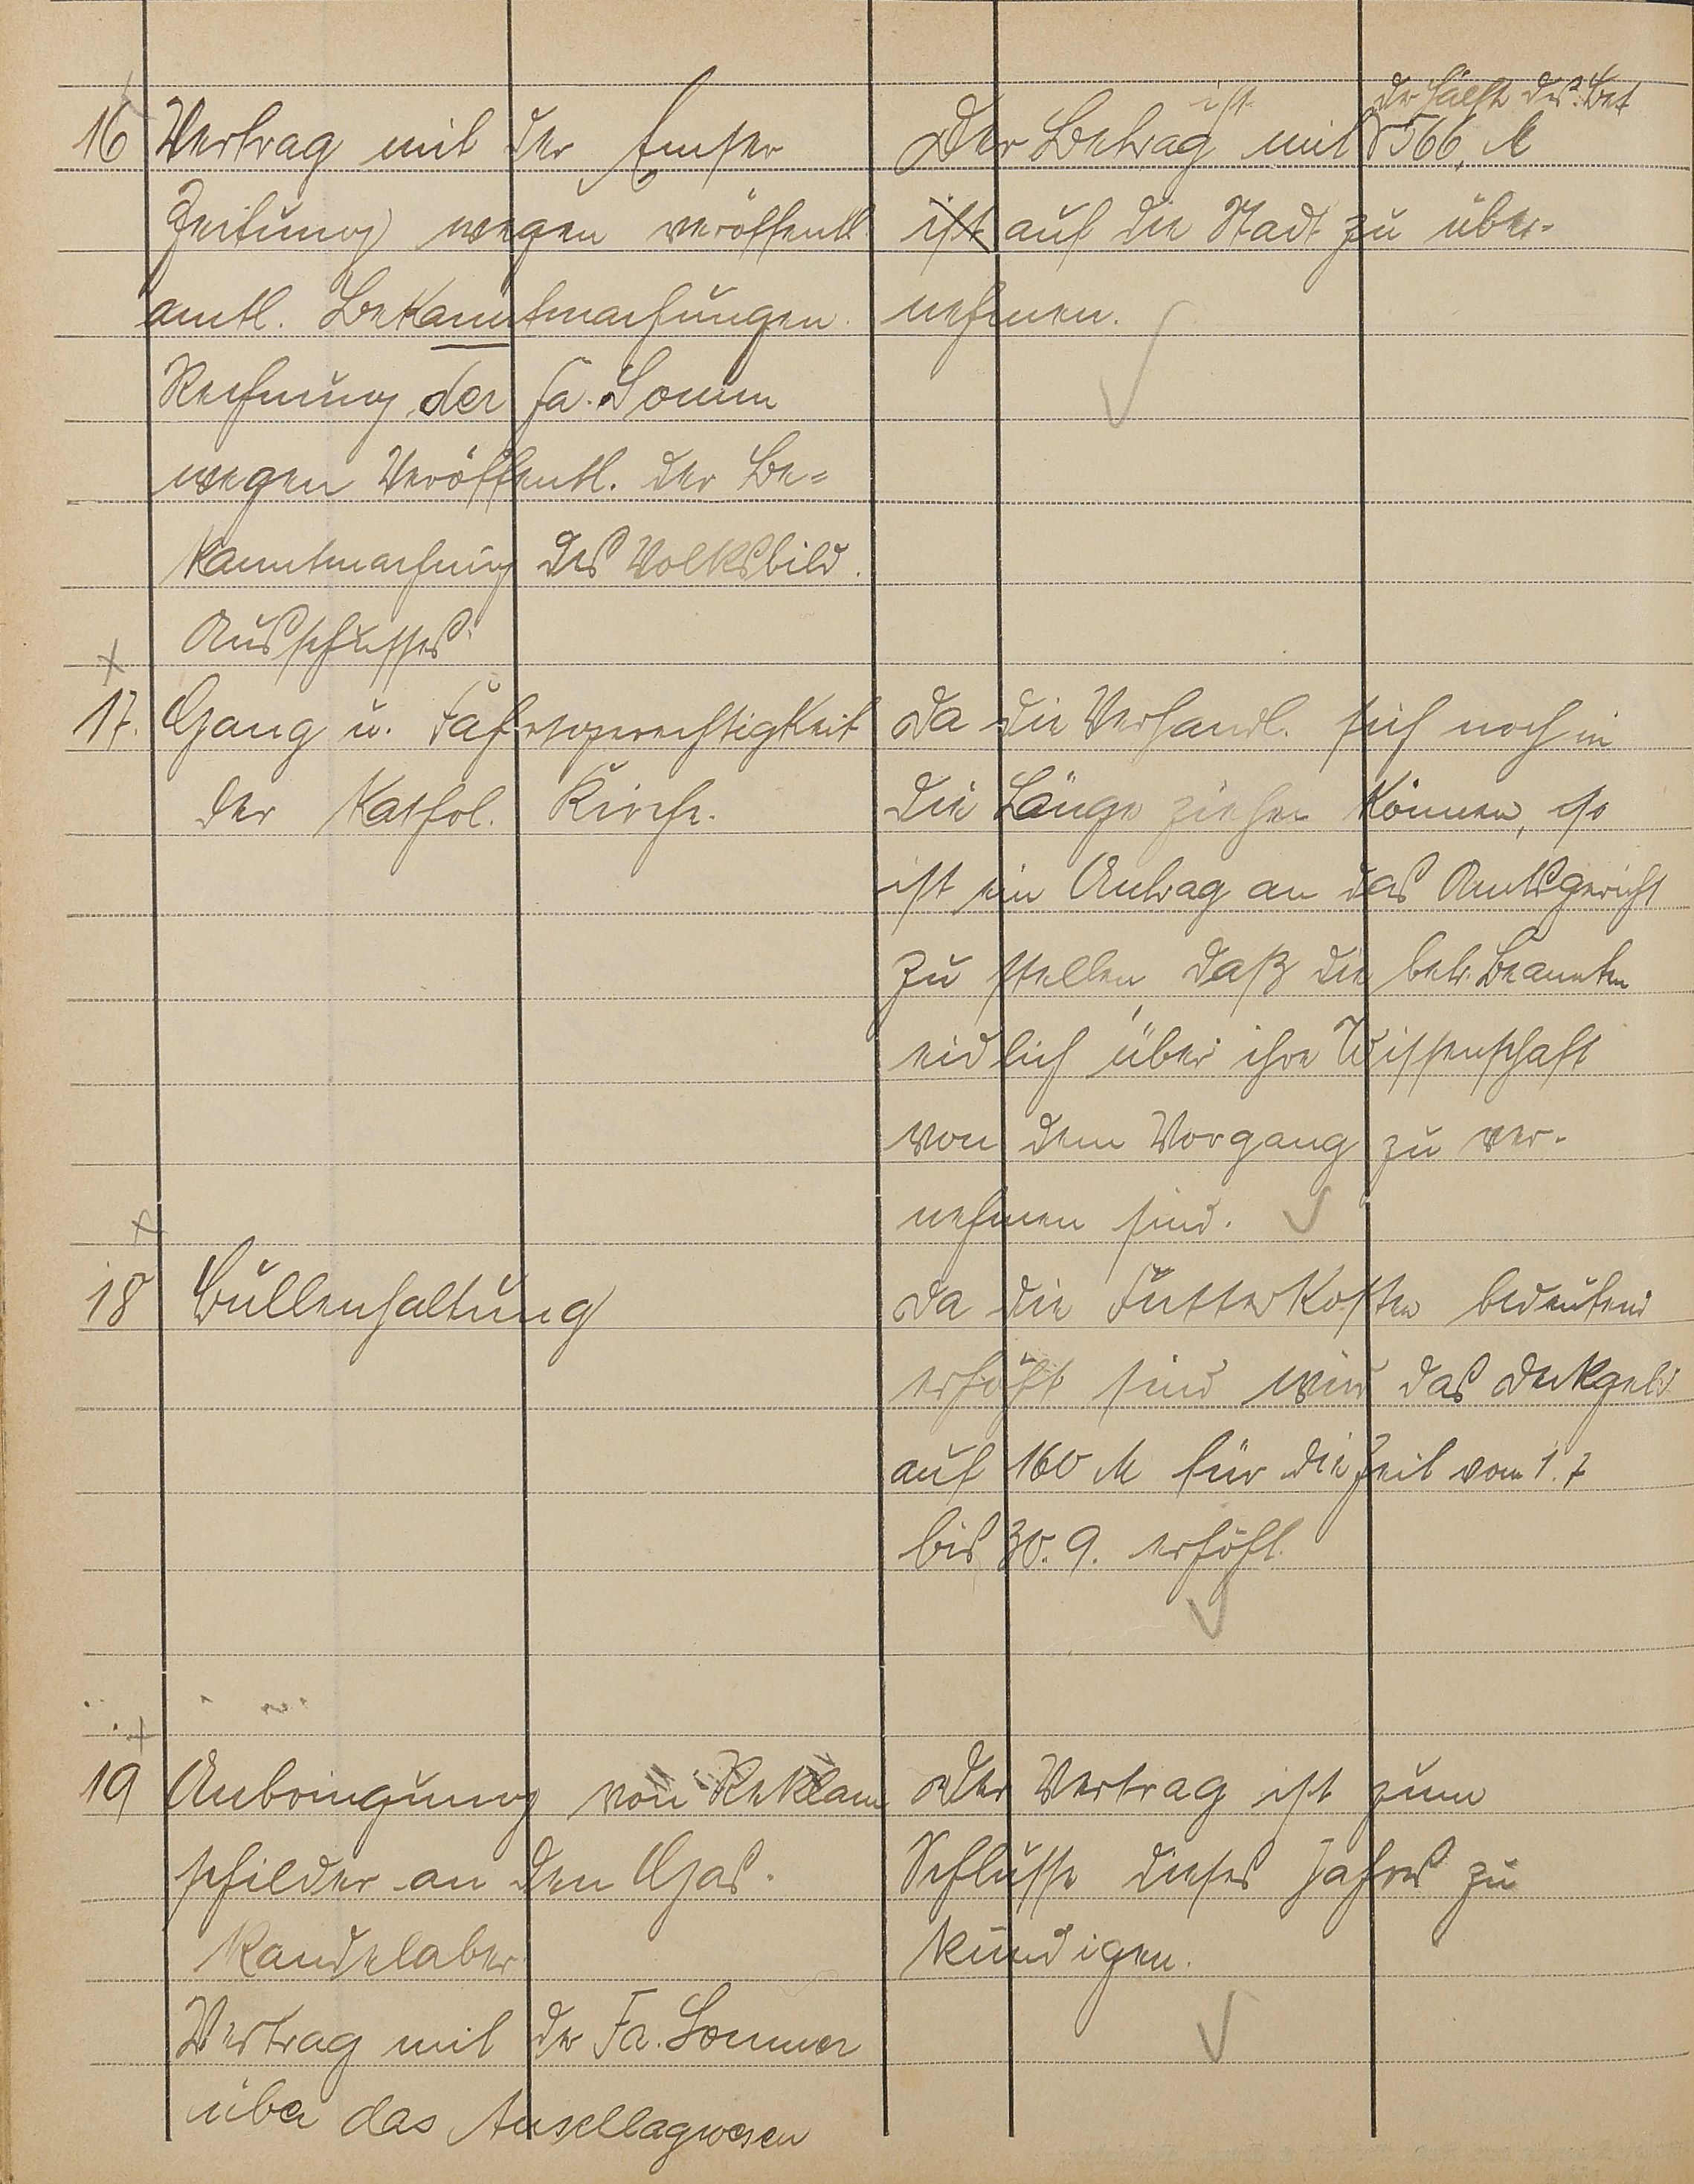 16 Vertrag mit der Emser
Zeitung wegen veröffentl
amtl. Bekanntmachungen.
Rechnung der Fa. Somm
wegen Veröffentl. der Be=
kanntmachung des Volksbild.
Ausschusses
ist der Hälfte des Bet
Der Betrag mit 566, M
ist auf die Stadt zu über-
nehmen.
17. Gang u. Fahrtgerechtigkeit
der Kathol. Kirche.
Da die Verhandl. sich noch in
die Länge ziehen können, so
ist ein Antrag an das Amtsgericht
zu stellen, daß die betr. Beamten
eidlich über ihre Wissenschaft
von dem Vorgang zu ver-
nehmen sind.
18 Bullenhaltung
Da die Futterkosten bedeutend
erhöht sind wird das Deckgeld
auf 160 M für die Zeit vom 1.7
bis 30.9. erhöht.
19 Anbringung von Reklam
schilder an den Gas-
kandelaber
Vertrag mit der Fa. Sommer
über das Anschlagwesen
Der Vertrag ist zum
Schlusse dieses Jahres zu
kündigen.